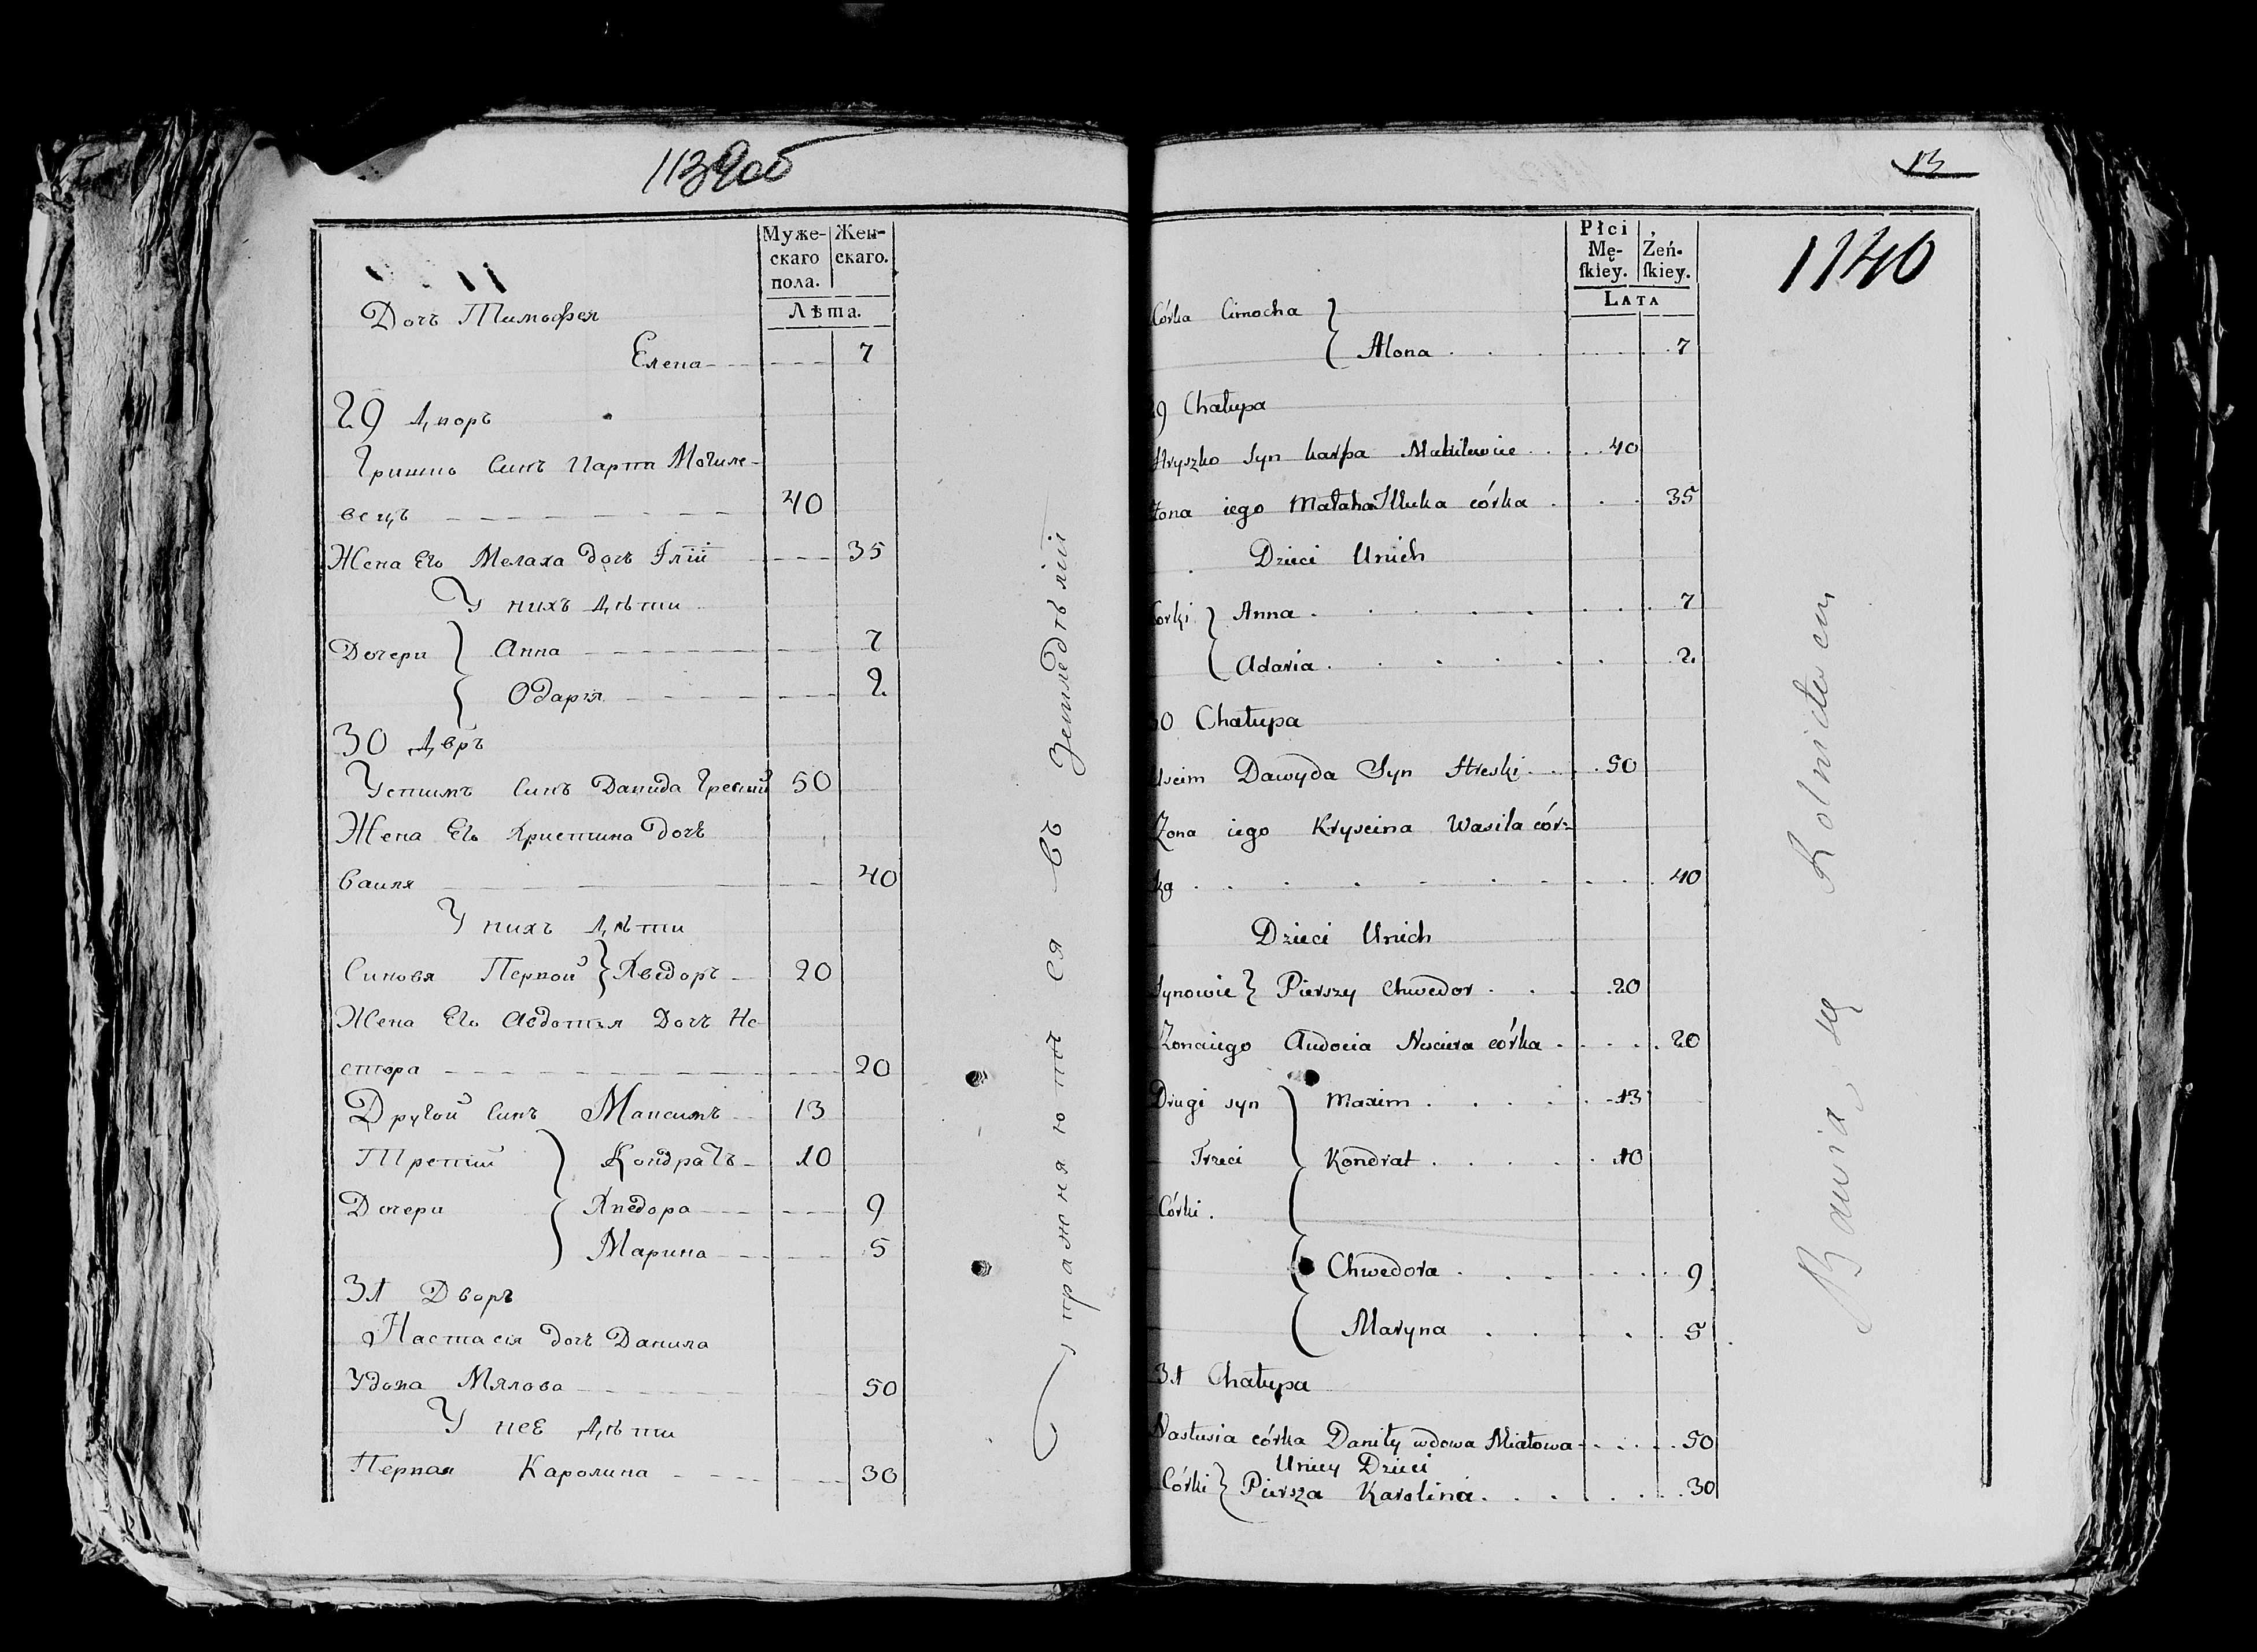 1139об
Муже-
скаго
пола.
Жен-
скаго.
Лѣта.
Дочь Тимофея
Елена 7
29 Дворъ
Гришко Синъ Карпа Могиле-
вецъ 40
Жена Его Мелаха дочь Іллії 35
У нихъ Дѣти
Дочери Анна 7
Одарія 2
30 Двръ
Устимъ Синъ Давида 50
Жена Его Христина дочь
Василя 40
У нихъ Дѣти
Синовя Первой Хведоръ 20
Жена Его Авдотъя Дочь Не-
стора 20
Другой Синъ Максимъ 13
Третій Кондратъ 10
Дочери Хведора 9
Марина 5
31 Дворъ
Настасія дочь Данила
Удова Мялова 50
У неЕ Дѣти
Первая Каролина 30
Упражняются въ Земледѣлій
13
1140
Płci
Mę-
ſkiey.
Żeń-
ſkiey.
LATA
Córka Cimocha
Alona 7
29 Chałupa
Hryszko Syn Karpa 40
Żona iego Małaha Illuka córka 35
Dzieci Unich
Corki Anna 7
Adaria 2
30 Chałupa
Uscim Dawyda Syn Hreski 50
Żona iego Kryscina Wasila cór-
ka 40
Dzieci Unich
Synowie Pierszy Chwedor 20
Żona iego Audocia Nesciera córka 20
Drugi syn Maxim 13
Trzeci Kondrat 10
Córki.
Chwedora 9
Maryna 5
31 Chałupa
Nastusia córka Daniły wdowa Miałowa 50
Uniey Dzieci
Córki Piersza Karolina 30
Bawią się Rolnictwem